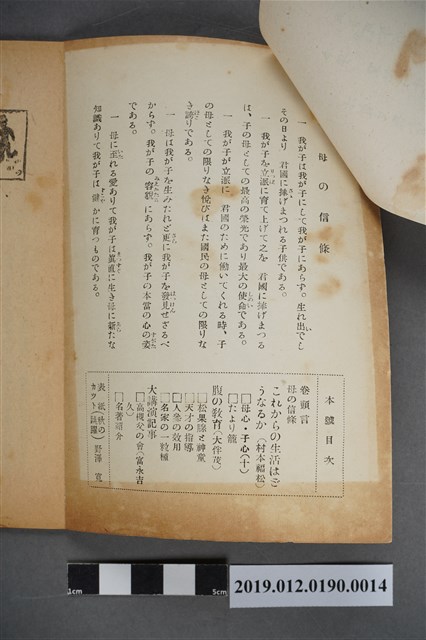 母の信條
一 我が子は我が子にして我が子にあらず。生れ出でし
その日より 君國に捧げまつれる子供である。
一 我が子を立派に育て上げて之を 君國に捧げまつる
は、子の母としての最高の榮光であり最大の使命である。
一 我が子が立派に 君國のために働いてくれる時、子
の母としての限りなき悅びはまた國民の母としての限りな
き誇りである。
一 母は我が子を生みたれど更に我が子を發見せざるべ
からず。我が子の容貌にあらず。我が子の本當の心の姿
である。
一 母に至れる愛ありて我が子は眞直に生き母に新たな
知識ありて我が子は健かに育つものである。
本號目次
卷頭言
母の信條
これからの生活はど
うなるか(村本福松)
母心・子心(十)
たより籠
腹の敎育(大伴茂)
松果腺と神童
天才の指導
人參の效用
名家の一粒種
大講演記事
高機父の會(富永吉
久)
名著紹介
表紙(秋の
カット(誌題) 野澤 寬
1cm
5cm
2019.012.0190.0014